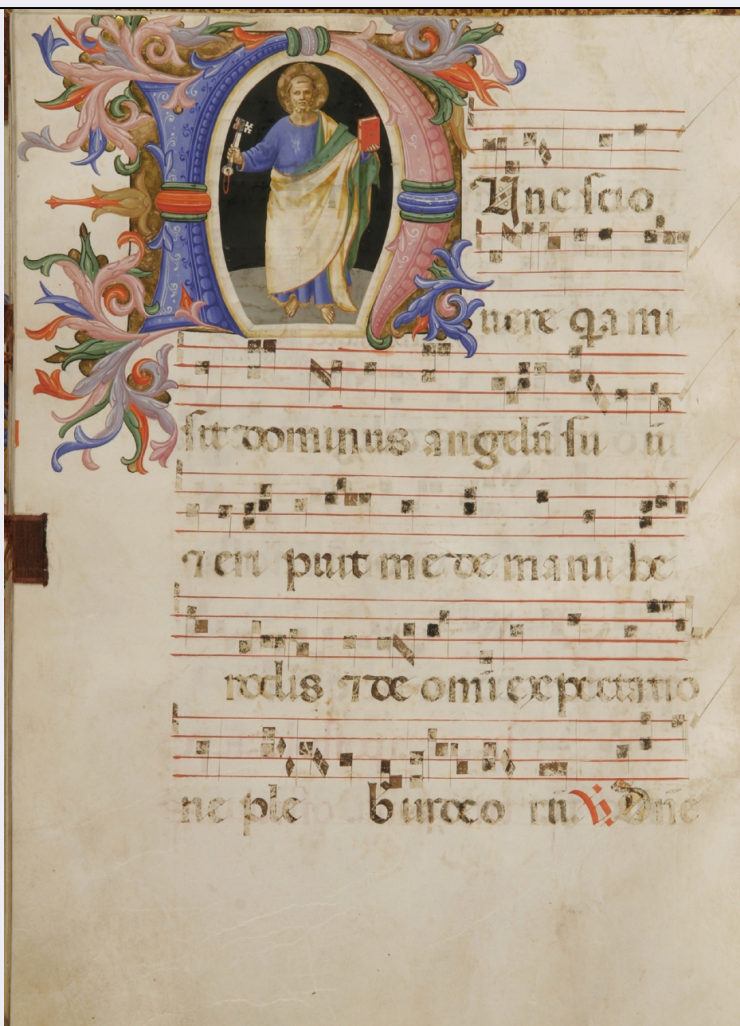 Unc scio
uere q̄a mi
sit dominus angelū su ū
⁊ eri puit me de manu he
rodis ⁊ de omī expectatio
ne ple b iudeo rū. V. Dn̄e